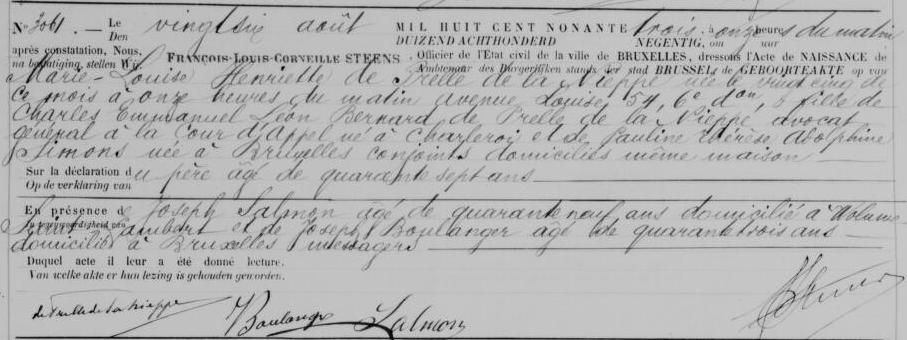 No 3061.- Le vingt six août MIL HUIT CENT NONANTE trois, à onze heures du matin
Den DUIZEND ACHTHONDERD NEGENTIG, om uur
après constatation, Nous, FRANÇOIS-LOUIS-CORNEILLE STEENS, Officier de l'Etat civil de la ville de BRUXELLES, dressons l'Acte de NAISSANCE de
na bevestiging stellen Wij, Ambtenaar des Burgerlijken stands der stad BRUSSEL de GEBOORTEAKTE op van
Marie-Louise Henriette de Prelle de la Nieppe née le vingt cinq de
ce mois à onze heures du matin avenue Louise, 54, 6e don, fille de
Charles Emmanuel Léon Bernard de Prelle de la Nieppe, avocat
général à la Cour d'Appel né à Charleroi et de Pauline Thérèse Adolphine
Simons née à Bruxelles conjoints domiciliés même maison
Sur la déclaration du père âgé de quarante sept ans
Op de verklaring van
En présence de Joseph Salmon âgé de quarante neuf ans domicilié à Woluwe
In tegenwoordigheid van Saint Lambert et de Joseph Boulanger âgé de quarante trois ans
domicilié à Bruxelles messagers
Duquel acte il leur a été donné lecture.
Van welke akte er hun lezing is gehouden geworden.
de Prelle de la Nieppe J Boulanger Salmon